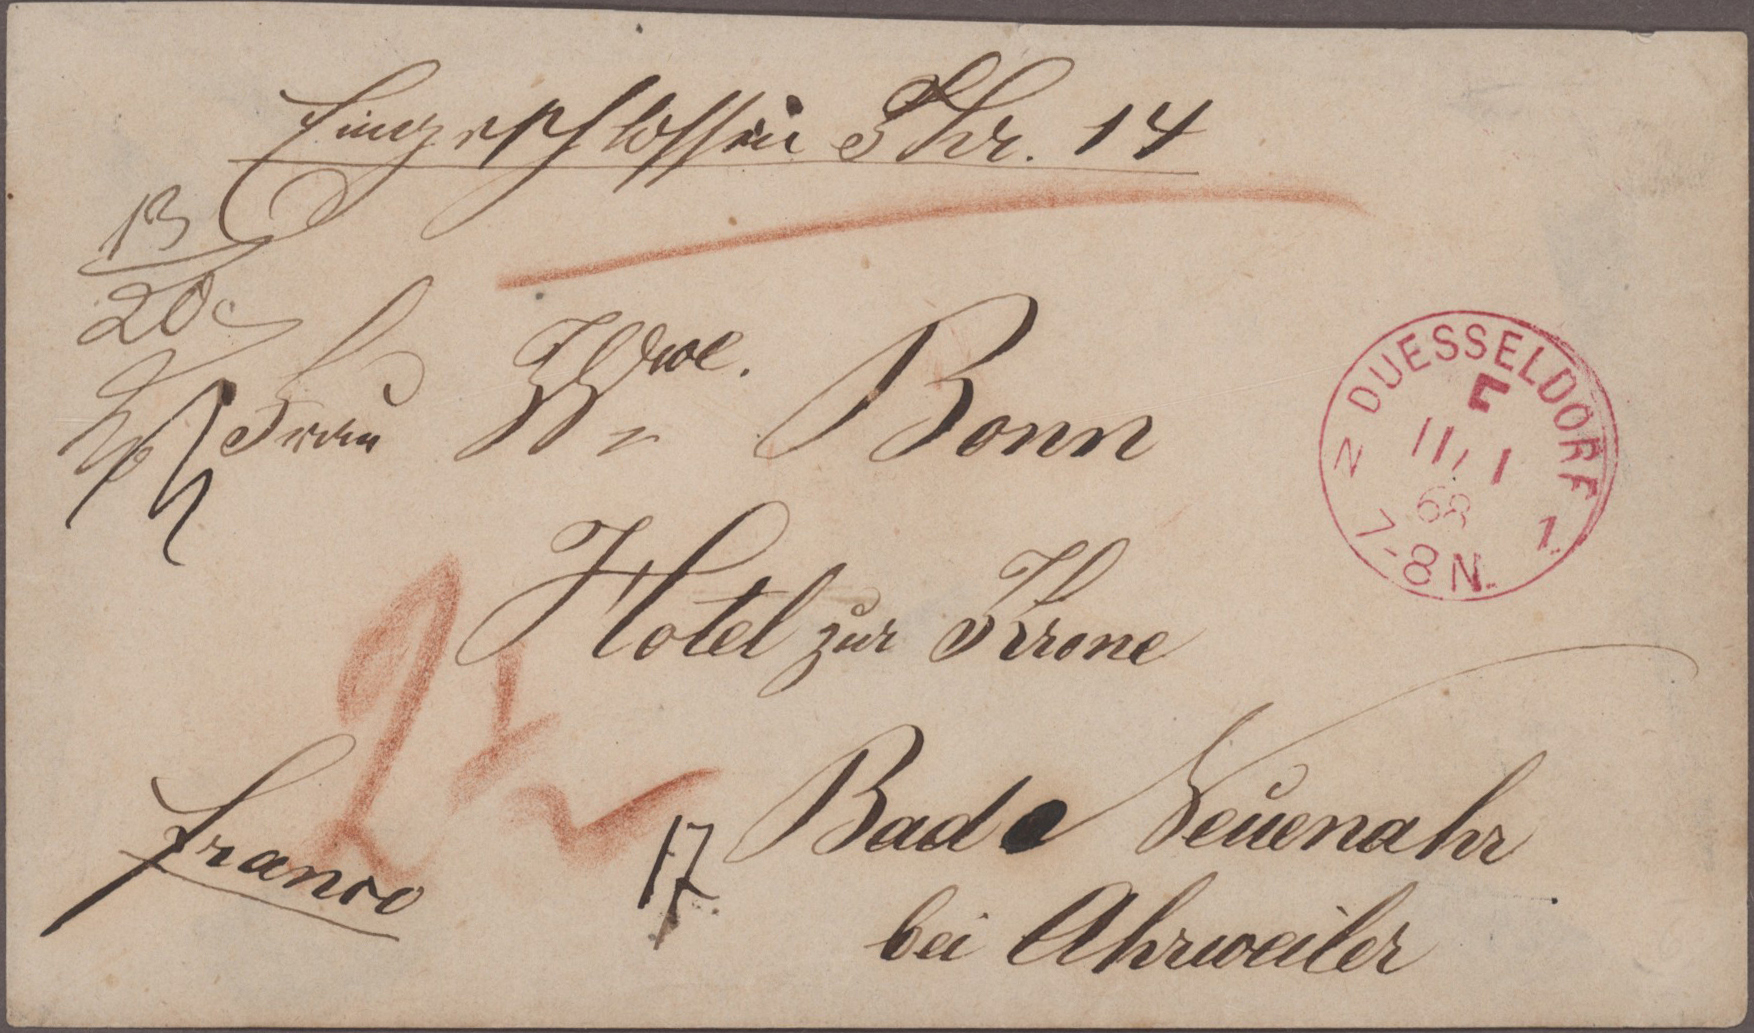 Eingeschlossen Thr. 14
13
20
Frau Wwe. Bonn
DUESSELDORF
11/1
68
7-8 N.
1.
Hotel zur Krone
2 1/2
franco
17
Bad Neuenahr
bei Ahrweiler